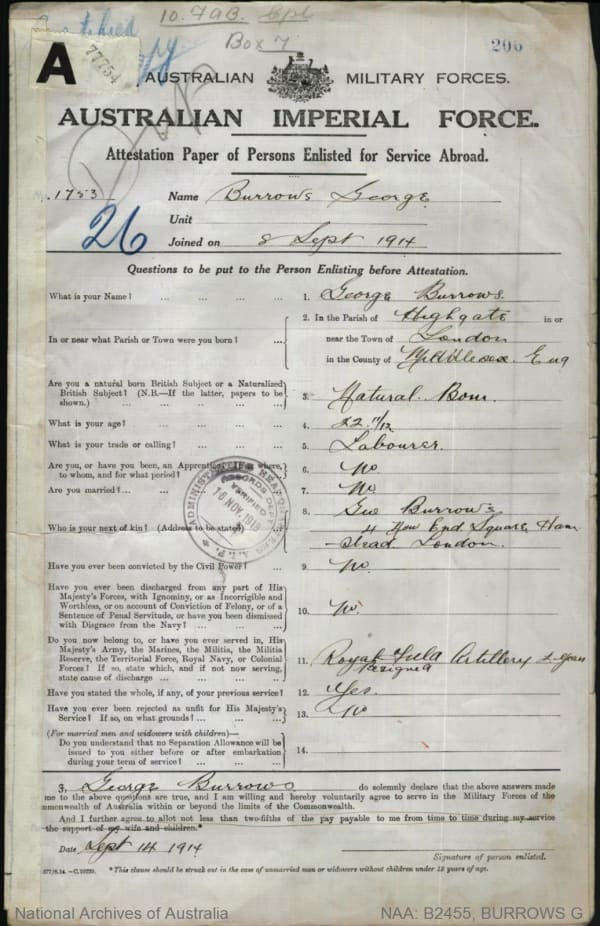 10. FAB. Cpl
Box 7
206
A 77754
AUSTRALIAN MILITARY FORCES.
AUSTRALIAN IMPERIAL FORCE.
Attestation Paper of Persons Enlisted for Service Abroad.
1753 Name Burrows George
26 Unit
Joined on 8 Sept 1914
Questions to be put to the Person Enlisting before Attestation.
What is your Name? ... ... ... ... 1. George Burrows.
In or near what Parish or Town were you born? ... ... 2. In the Parish of Highgate in or
near the Town of London
in the County of Middlesex. Eng
Are you a natural born British Subject or a Naturalized
British Subject? (N.B.—If the latter, papers to be
shown.) ... ... ... ... ... 3. Natural. Born.
What is your age? ... ... ... ... 4. 22 11/12
What is your trade or calling? ... ... ... 5. Labourer.
Are you, or have you been, an Apprentice? If so, where,
to whom, and for what period? 6. No
Are you married? ... ... 7. No
Who is your next of kin? (Address to be stated) 8. Geo Burrows
4 New End Square Ham
-stead London.
ADMINISTRATIVE HEADQUARTERS A.I.F.
RECORDS DEPT
VERIFIED
16 NOV. 1918
Have you ever been convicted by the Civil Power? ... 9. No.
Have you ever been discharged from any part of His
Majesty's Forces, with Ignominy, or as Incorrigible and
Worthless, or on account of Conviction of Felony, or of a
Sentence of Penal Servitude, or have you been dismissed
with Disgrace from the Navy? ... ... ... 10. No.
Do you now belong to, or have you ever served in, His
Majesty's Army, the Marines, the Militia, the Militia
Reserve, the Territorial Force, Royal Navy, or Colonial
Forces? If so, state which, and if not now serving,
state cause of discharge ... ... ... ... 11. Royal Field Artillery 2 Years
Resigned
Have you stated the whole, if any, of your previous service? 12. Yes.
Have you ever been rejected as unfit for His Majesty's
Service? If so, on what grounds? ... ... ... 13. No
(For married men and widowers with children)—
Do you understand that no Separation Allowance will be
issued to you either before or after embarkation
during your term of service? ... ... ... 14.
George Burrows do solemnly declare that the above answers made
me to the above questions are true, and I am willing and hereby voluntarily agree to serve in the Military Forces of the
mmonwealth of Australia within or beyond the limits of the Commonwealth.
And I further agree to allot not less than two-fifths of the pay payable to me from time to time during my service
the support of my wife and children.*
Date Sept 14 1914
Signature of person enlisted.
*This clause should be struck out in the case of unmarried men or widowers without children under 18 years of age.
National Archives of Australia NAA: B2455, BURROWS G